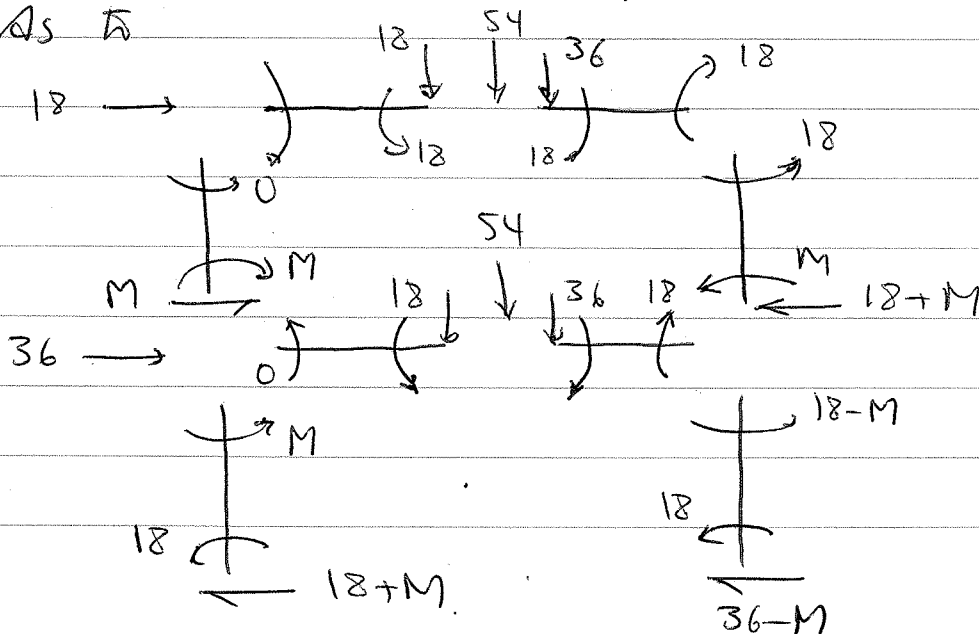 As
18 54
36 18
18
18 18 18
0
54
M M M
18 36 18 18+M
36
0
M 18-M
18 18
18+M
36-M